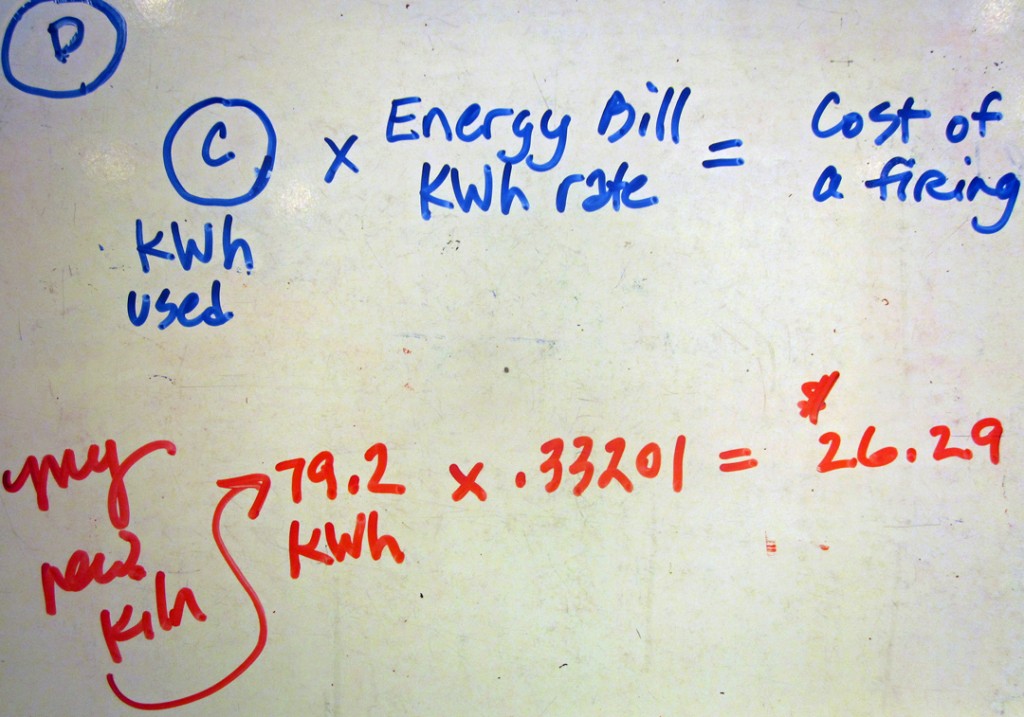 D
C x Energy Bill = Cost of
KWh rate a firing
KWh
used
my
new
Kiln
79.2 x .33201 = $26.29
KWh